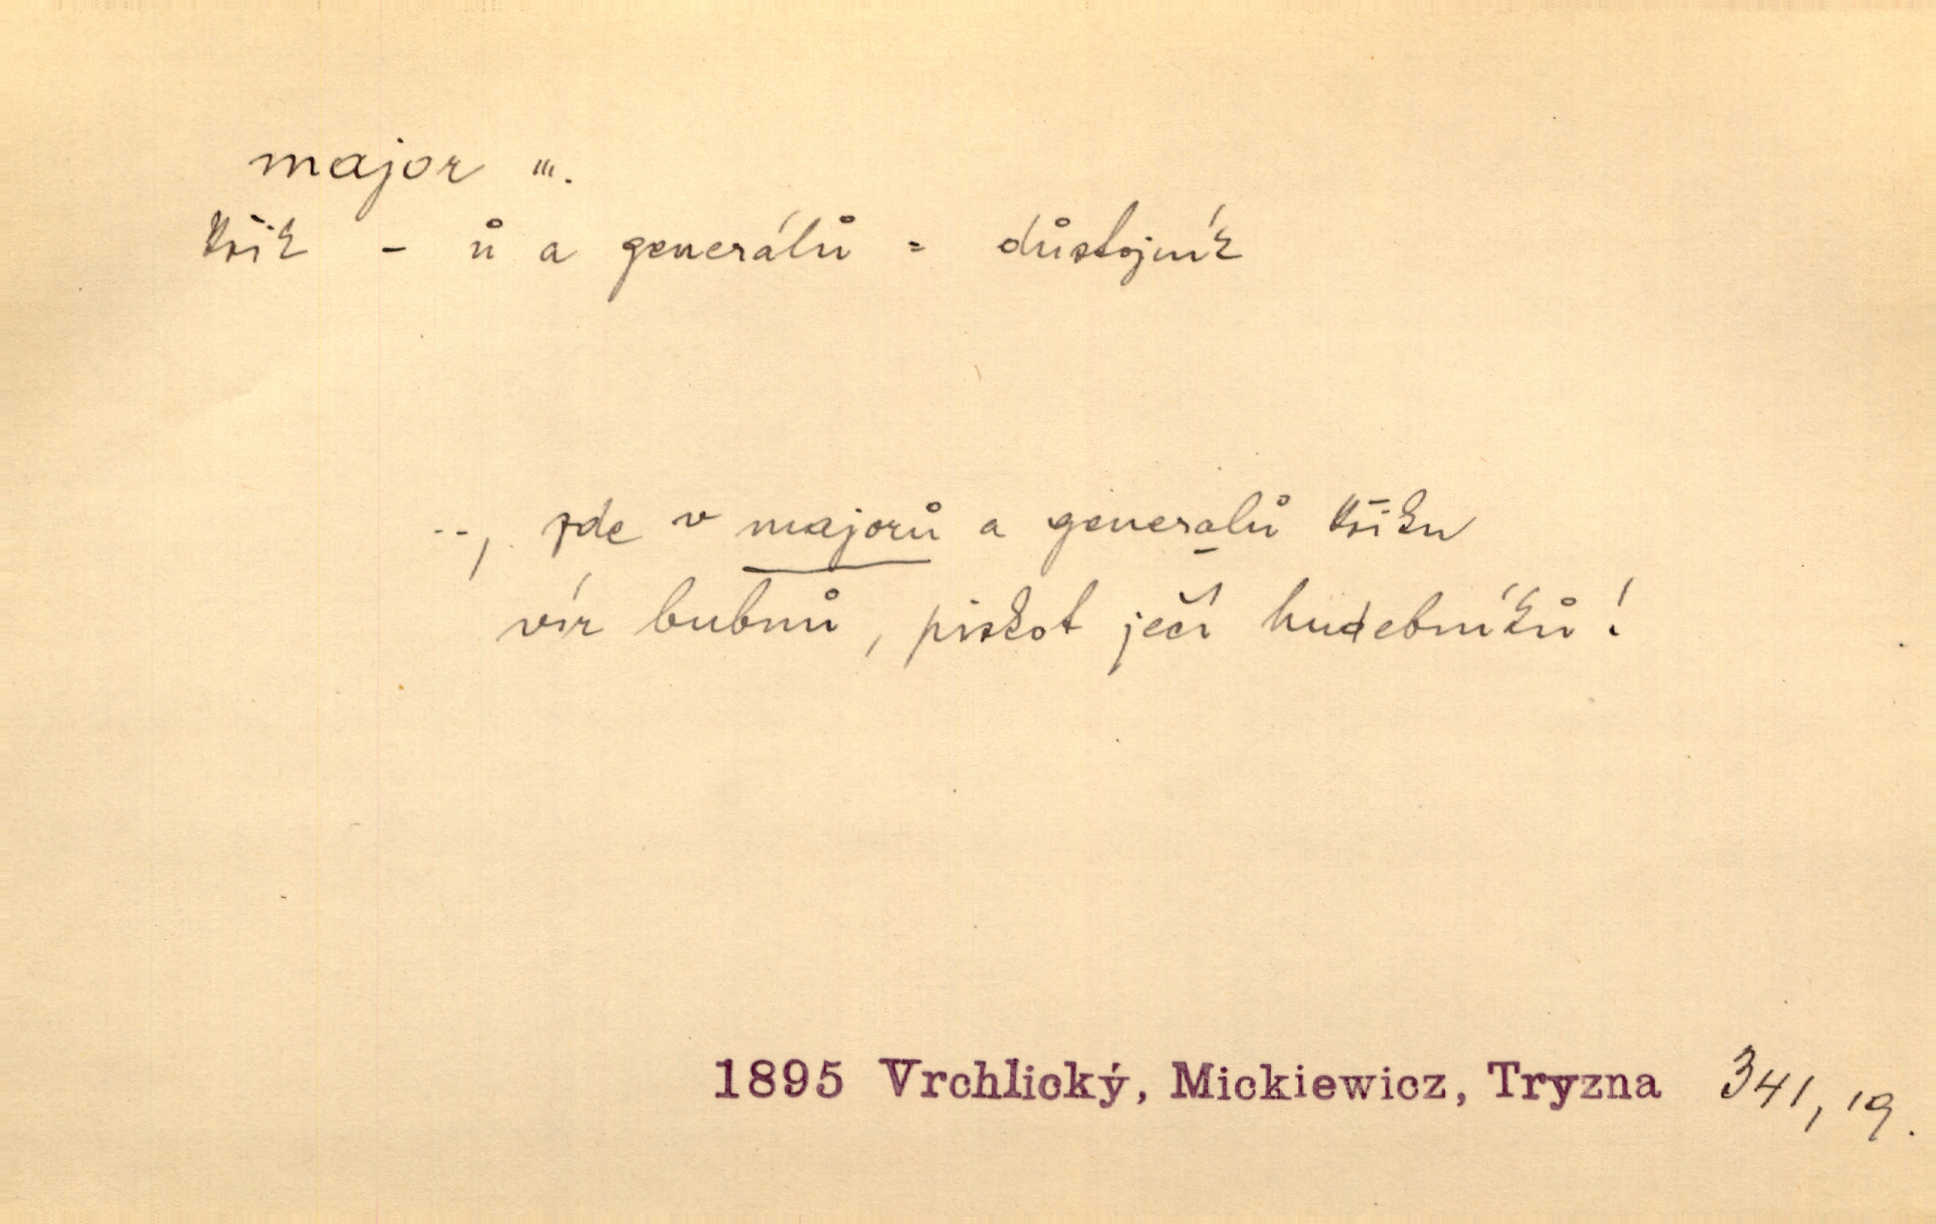 major m.
křik - ů a generálů = důstojník
.., zde v majorů a generalů křiku
vír bubnů, pískot ječí hudebníků!
1895 Vrchlický, Mickiewicz, Tryzna 341, 19.